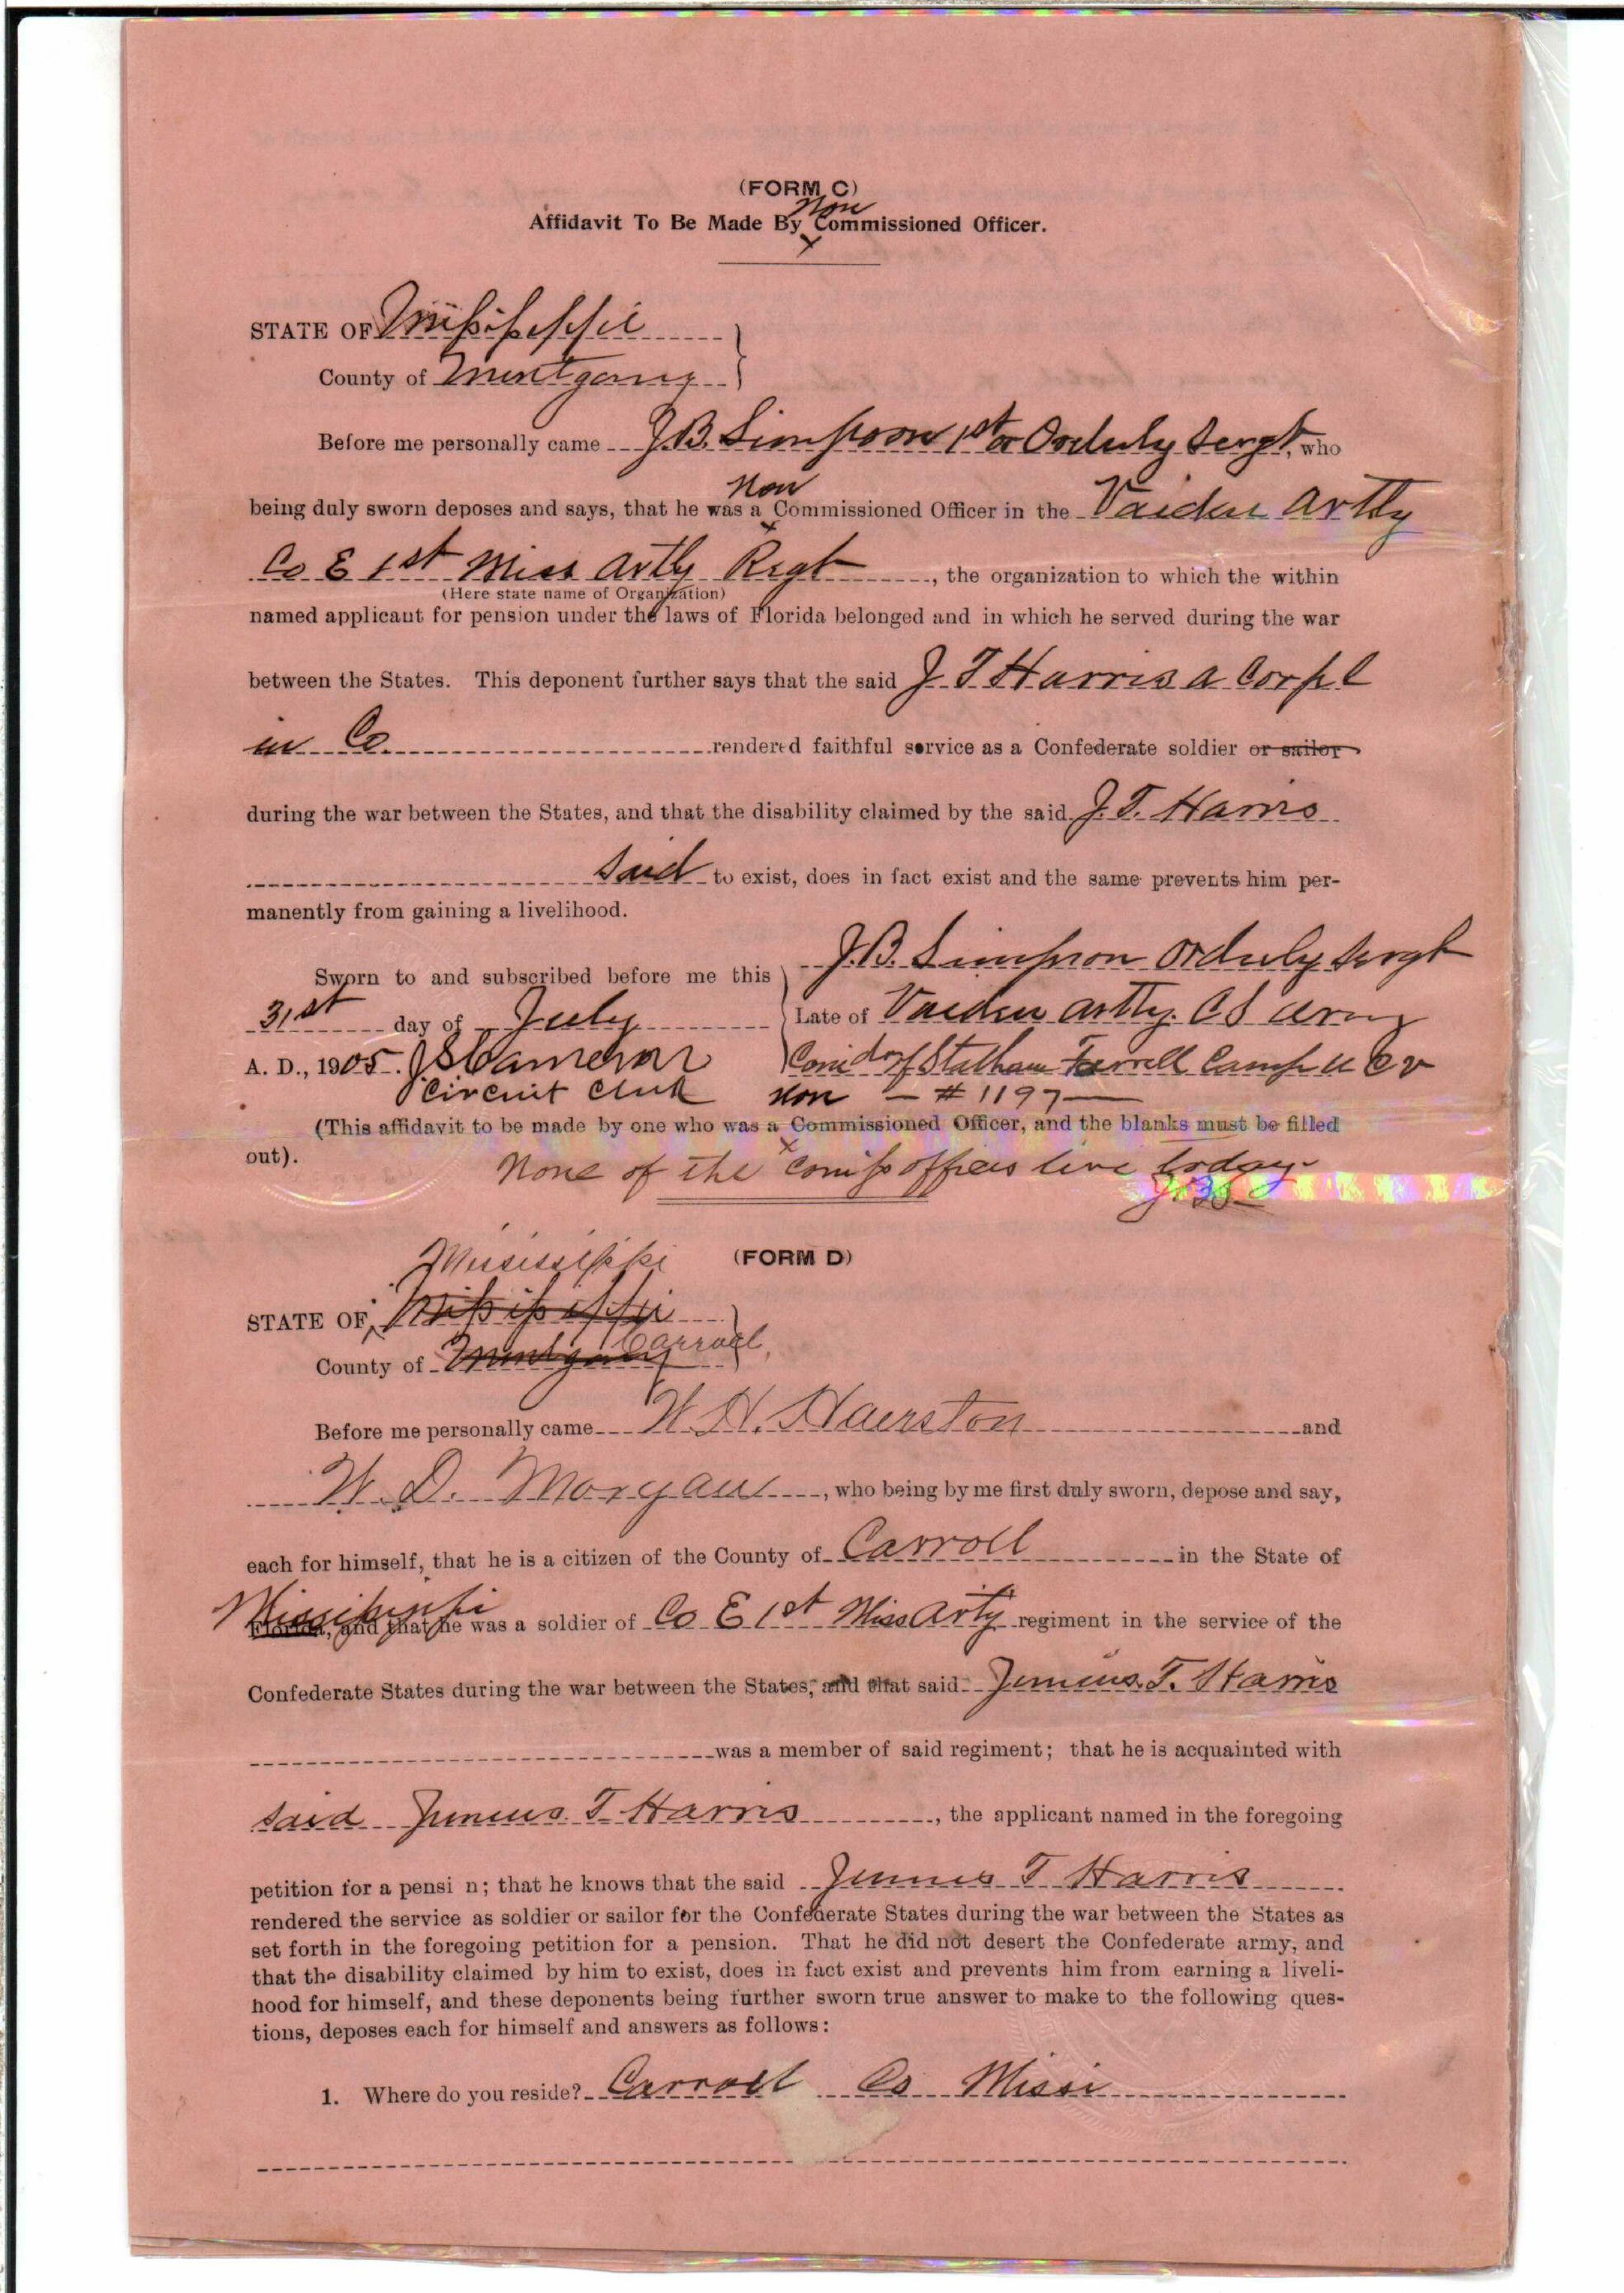 (FORM C)
Non
Affidavit To Be Made By x Commissioned Officer.
STATE OF Missisippi
County of Montgomy
Before me personally came J.B. Simpson 1st or Orduly Sergt, who
Non
being duly sworn deposes and says, that he was a x Commissioned Officer in the Vaiden Artly
Co E 1st Miss Artly Regt, the organization to which the within
(Here state name of Organization)
named applicant for pension under the laws of Florida belonged and in which he served during the war
between the States. This deponent further says that the said J T Harris a Corpl
in Co rendered faithful service as a Confederate soldier or sailor
during the war between the States, and that the disability claimed by the said J. T. Harris
said to exist, does in fact exist and the same prevents him per-
manently from gaining a livelihood.
J.B. Simpson Orduly Sergt
Sworn to and subscribed before me this
31st day of July Late of Vaiden Artly. C S Army
A. D., 1905. J S Cameron Comdr of Statham Farrell Camp U C V
Circuit Clerk Non — # 1197 —
(This affidavit to be made by one who was a x Commissioned Officer, and the blanks must be filled
out).
None of the Comis officers live today-
JBS
Mississippi (FORM D)
STATE OF Missisippi
County of Montgomy Carroll
Before me personally came W. H. Hairston and
W. D. Morgan, who being by me first duly sworn, depose and say,
each for himself, that he is a citizen of the County of Carroll in the State of
Mississippi
Florida, and that he was a soldier of Co E 1st Miss Arty regiment in the service of the
Confederate States during the war between the States, and that said Junius. T. Harris
was a member of said regiment; that he is acquainted with
said Junius. T. Harris, the applicant named in the foregoing
petition for a pensi n; that he knows that the said Junius T Harris
rendered the service as soldier or sailor for the Confederate States during the war between the States as
set forth in the foregoing petition for a pension. That he did not desert the Confederate army, and
that the disability claimed by him to exist, does in fact exist and prevents him from earning a liveli-
hood for himself, and these deponents being further sworn true answer to make to the following ques-
tions, deposes each for himself and answers as follows:
1. Where do you reside? Carroll Co Missi